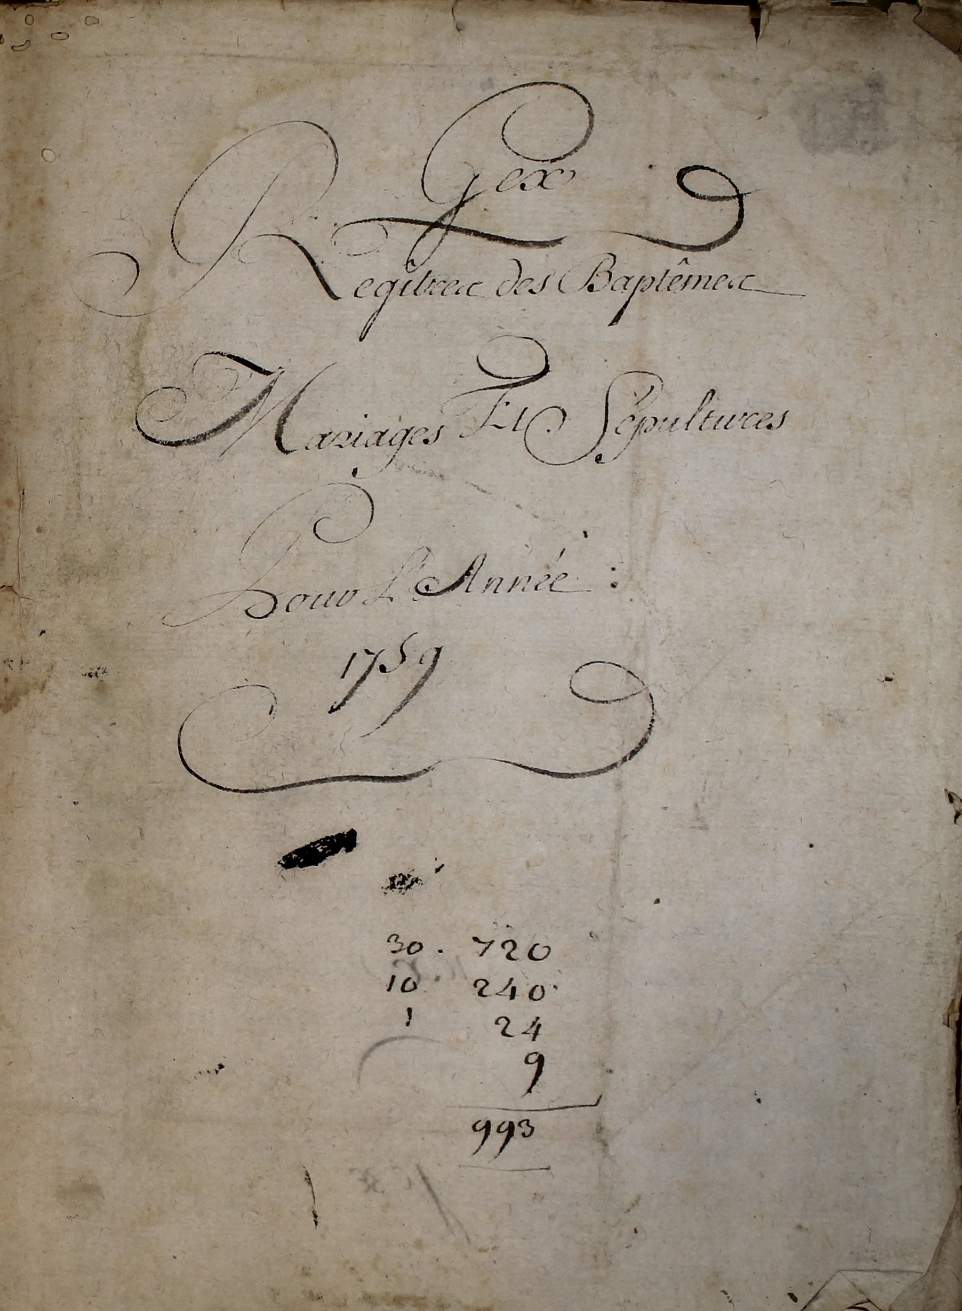 Gex
Regîtres des Baptêmes
Mariages Et Sépultures
Pour L'Année :
1759
30 . 720
10 240
1 24
9
993